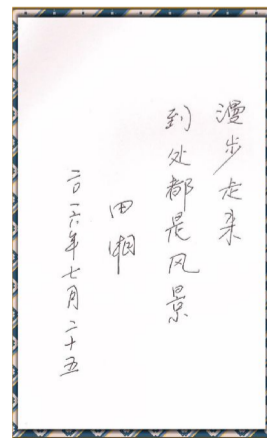 漫步走来
到处都是风景
田湘
二〇一六年七月二十五